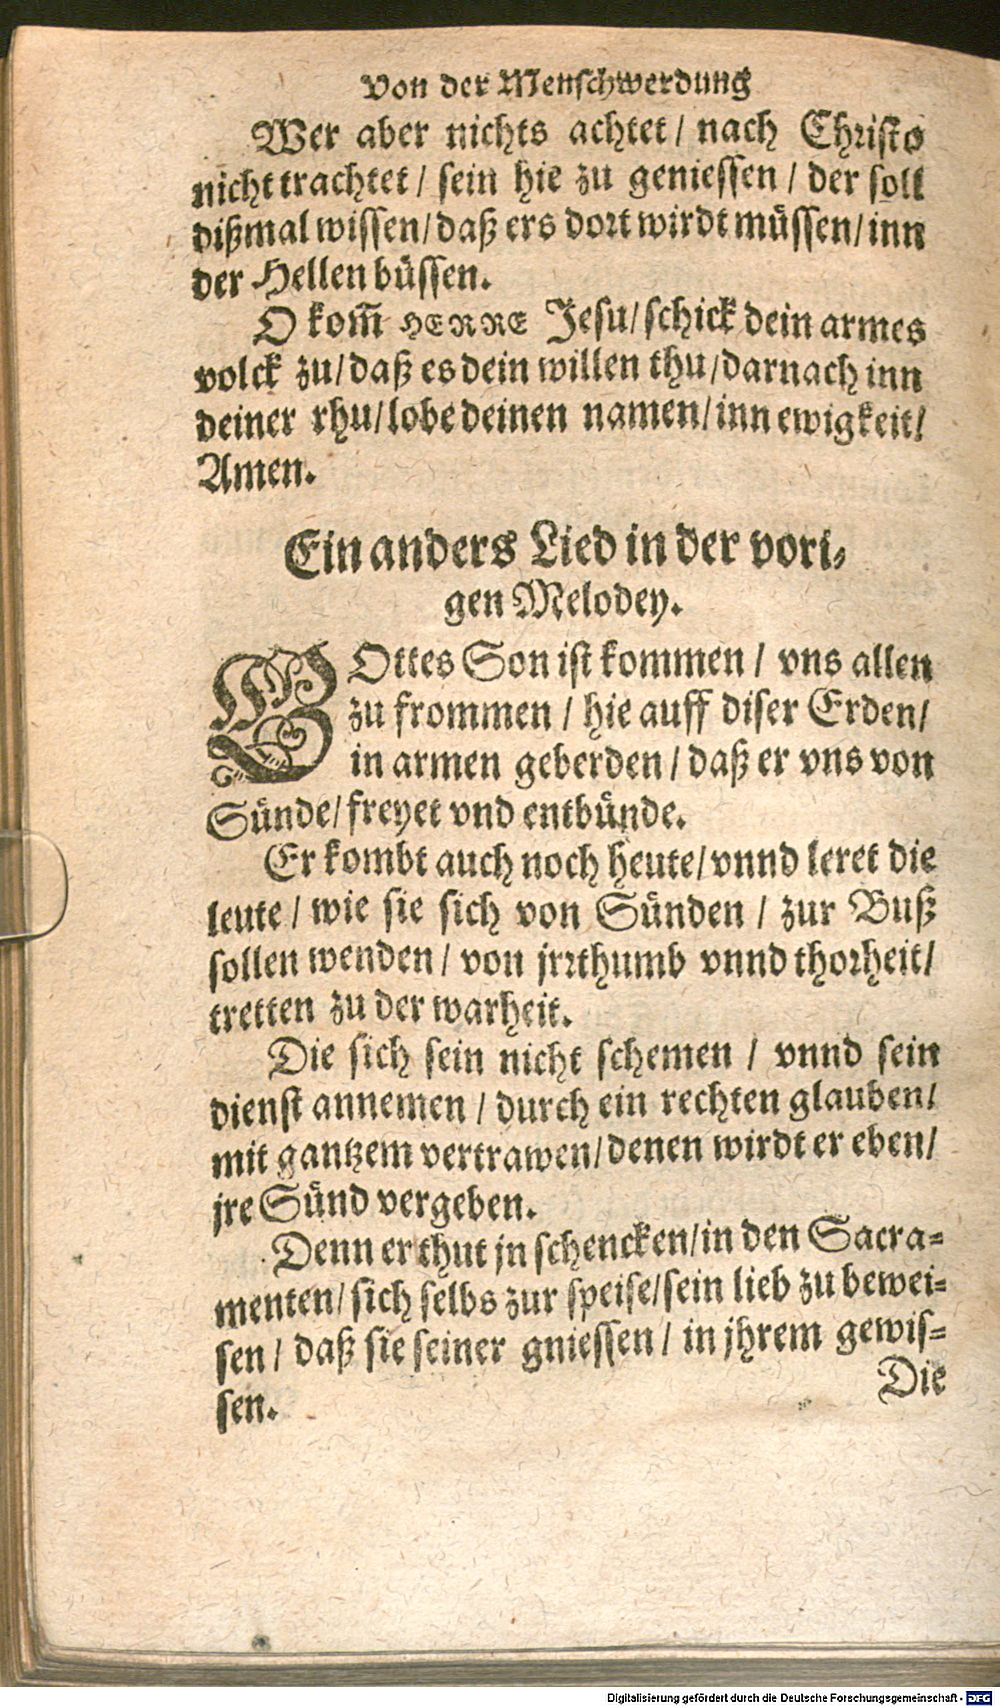 Von der Menschwerdung
Wer aber nichts achtet / nach Christo
nicht trachtet / sein hie zu geniessen / der soll
dißmal wissen / daß ers dort wirdt müssen / inn
der Hellen büssen.
O kom̃ HERRE Jesu / schick dein armes
volck zu / daß es dein willen thu / darnach inn
deiner rhu / lobe deinen namen / inn ewigkeit /
Amen.
Ein anders Lied in der vori-
gen Melodey.
GOttes Son ist kommen / vns allen
zu frommen / hie auff diser Erden /
in armen geberden / daß er vns von
Sünde / freyet vnd entbünde.
Er kombt auch noch heute / vnnd leret die
leute / wie sie sich von Sünden / zur Buß
sollen wenden / von jrrthumb vnnd thorheit /
tretten zu der warheit.
Die sich sein nicht schemen / vnnd sein
dienst annemen / durch ein rechten glauben /
mit gantzem vertrawen / denen wirdt er eben /
jre Sünd vergeben.
Denn er thut jn schencken / in den Sacra-
menten / sich selbs zur speise / sein lieb zu bewei-
sen / daß sie seiner gniessen / in jhrem gewis-
sen.
Die
Digitalisierung gefördert durch die Deutsche Forschungsgemeinschaft - DFG